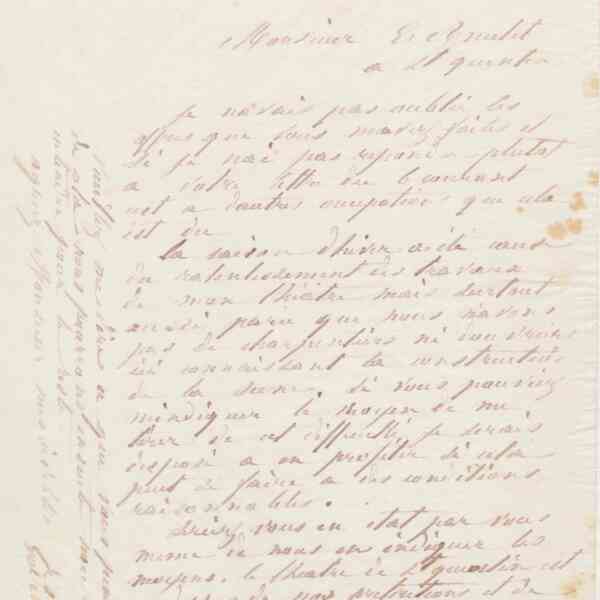 Monsieur E. Amelet
a St quentin
Je navais pas oublié les
offres que vous mavez faites et
Si je nai pas repondu plutot
a votre lettre du 6 courant
cest a dautres occupations que cela
est du
la saison d'hiver a été cause
du ralentissement des travaux
de mon théâtre mais surtout
aussi parce que nous navons
pas de charpentiers ni douvriers
ici connaissant la construction
de la scene. Si vous pouviez
mindiquer le moyen de me
tirer de cet difficulté, je serais
disposé a en profiter si cela
peut se faire a des conditions
raisonnables.
Seriez vous en état par vous
meme de nous en indiquer les
moyens. le théatre de St quentin est
de nos pretentions et de
Veuillez me dire a que vous
de cela nous pourrons ensuite
entendre pour le reste
agréez Monsieur mes civilités